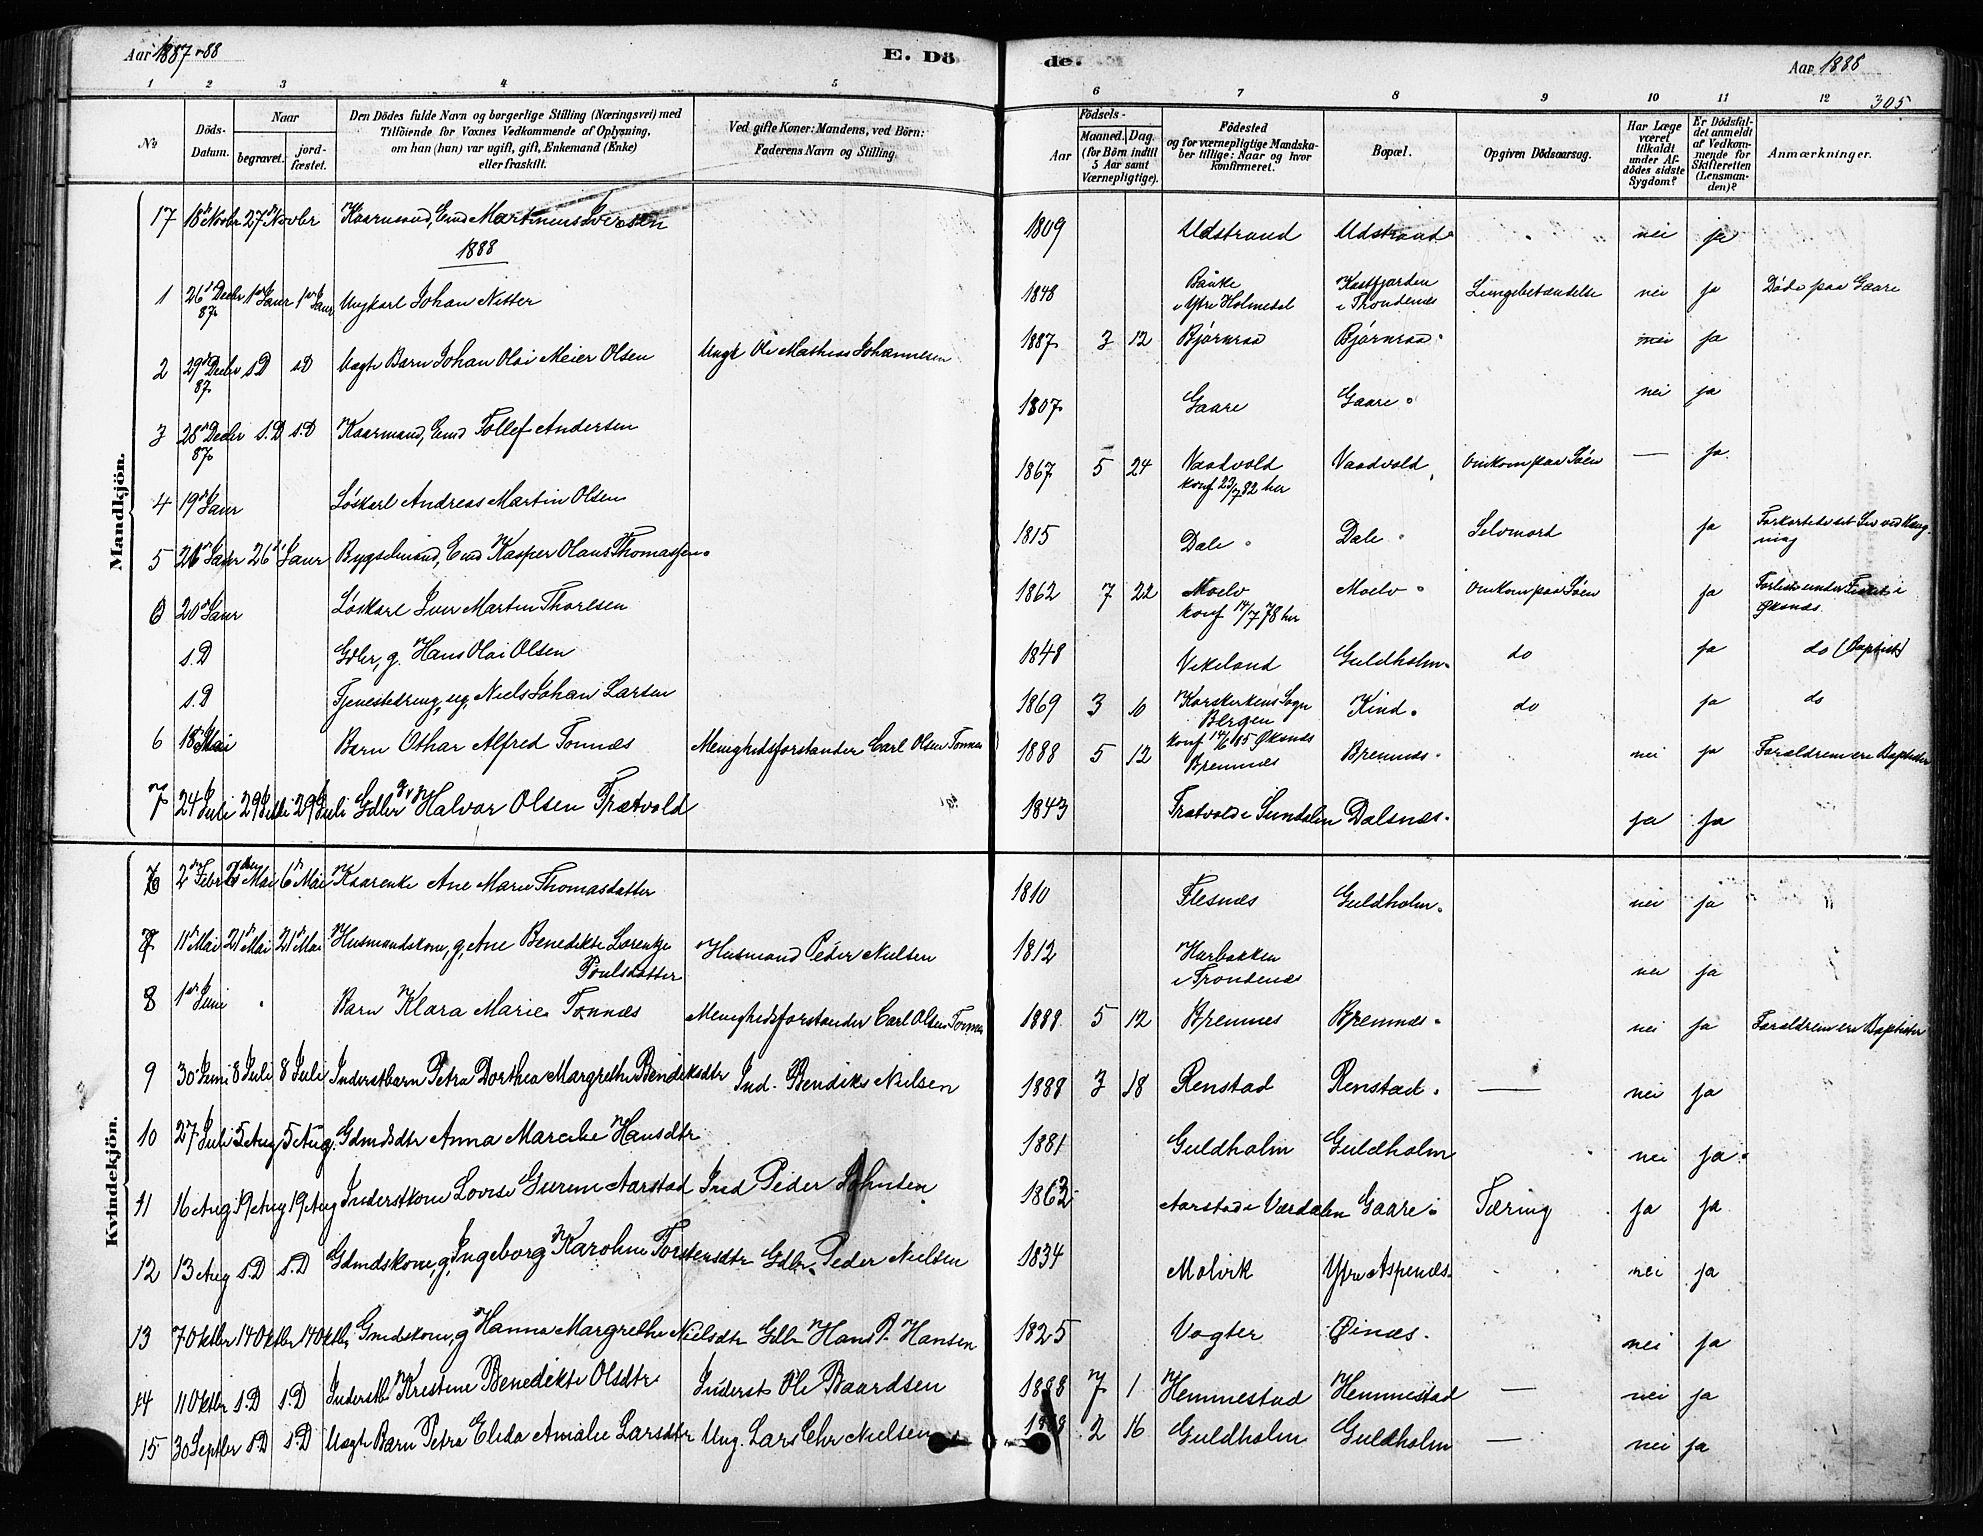 Aar 1887-88
E. Dö
de.
Aar 1888
305
1 2 3 4 5 6 7 8 9 10 11 12
No
Döds-Datum.
Naar
begravet.
jord-fæstet.
Den Dödes fulde Navn og borgerlige Stilling (Næringsvei) med
Tilföiende for Voxnes Vedkommende af Oplysning,
om han (hun) var ugift, gift, Enkemand (Enke)
eller fraskilt.
Ved gifte Koner: Mandens, ved Börn:
Faderens Navn og Stilling.
Födsels-
Aar
Maaned. Dag.
(for Börn indtil
5 Aar samt
Værnepligtige).
Födested
og for værnepligtige Mandska-
ber tillige: Naar og hvor
konfirmeret.
Bopæl.
Opgiven Dödsaarsag.
Har Læge
været
tilkaldt
under Af-
dödes sidste
Sygdom?
Er Dödsfal-
det anmeldt
af Vedkom-
mende for
Skifteretten
(Lensman-
den)?
Anmærkninger.
Mandkjön.
17 18de Novbr 27de Novbr Kaarmand, Emd Martinus Iversen 1809 Udstrand Udstrand nei ja
1888
1 26de Decbr 87 1ste Janr 1ste Janr Ungkarl Johan Nitter 1848 i Ytre Holmedal Kasfjorden i Trondenes Lungebetændelse nei ja Døde paa Gaare
2 29de Decbr 87 s.D s.D Uægte Barn Johan Olai Meier Olsen Ungk Ole Mathias Johannesen 1887 3 12 Bjørnraa Bjørnraa nei ja
3 28de Decbr 87 s.D s.D Kaarmand, Emd Tollef Andersen 1807 Gaare Gaare nei ja
4 19de Janr Løskarl Andreas Martin Olsen 1867 5 24 Vaadvold konf 23/7 82 her Vaadvold Omkom paa Søen — ja
5 26de Janr 26de Janr Bygselmand, Emd Kasper Olaus Thomassen 1815 Dale Dale Selvmord ja Forkortede sit Liv ved Hæng-
ning
20de Janr Løskarl Iver Martin Thorlsen 1862 7 22 Moelv konf 14/7 78 her Moelv Omkom paa Søen ja Forliste under Fiskeri i
Øksnes
s.D Gdbr, g. Hans Olai Olsen 1848 Vikeland Guldholm do ja do (Baptist)
s.D Tjenestedreng, ug, Niels Johan Larsen 1869 3 10 Korskirkens Sogn Bergen konf 14/6 85 Øksnes Kind do ja do
6 18de Mai Barn Othar Alfred Tonnæs Menighedsforstander Carl Olsen Tonnæs 1888 5 12 Bremnæs Bremnæs nei ja Forældrene ere Baptister
7 24 Juli 29 Juli 29 Juli Gdbr g. Halvar Olsen Trætvold 1843 Trætvold i Sundalen Dalsnæs ja ja
Kvindekjön.
6 2de Febr 6te Mai 6te Mai Kaarenke Ane Marie Thomasdatter 1810 Flesnæs Guldholm nei ja
7 11de Mai 21de Mai 21de Mai Husmandskone, g, Ane Benedikte Lorentze
Poulsdatter Husmand Peder Nielsen 1812 Harbakken
i Trondenæs nei ja
8 1ste Juni Barn Klara Marie Tonnæs Menighedsforstander Carl Olsen Tonnæs 1888 5 12 Bremnes Bremnæs nei ja Forældrene ere Baptister
9 30 Juni 8 Juli 8 Juli Inderstbarn Petra Dorthea Margrethe Bendiksdtr Ind. Bendiks Nielsen 1888 3 18 Renstad Renstad — nei ja
10 27 Juli 5 Aug 5 Aug. Gdmdsdtr Anna Marcelie Hansdtr 1881 Guldholm Guldholm nei ja
11 16 Aug 19 Aug 19 Aug Inderstkone Lovise Gurine Aarstad Ind Peder Johnsen 1863 Aarstad i Værdalen Gaare Tæring ja ja
12 13 Aug s.D s.D Gdmdskone, g, Ingeborg Karoline Torstensdtr Gdbr. Peder Nielsen 1834 Molvik Ytre Aspenæs nei ja
13 7 Oktbr 14 Oktbr 14 Oktbr Gmdskone, g Hanna Margrethe Nielsdtr Gdbr Hans P. Hansen 1825 Vogter Øinæs nei ja
14 11 Oktbr s.D s.D Inderstb. Kristine Benedikte Olsdtr Inderst Ole Baardsen 1888 7 1 Hemmestad Hemmestad — nei ja
15 30 Septbr s.D s.D Uægte Barn Petra Elida Amalie Larsdtr Ung. Lars Chr Nielsen 1888 2 16 Guldholm Guldholm — nei ja